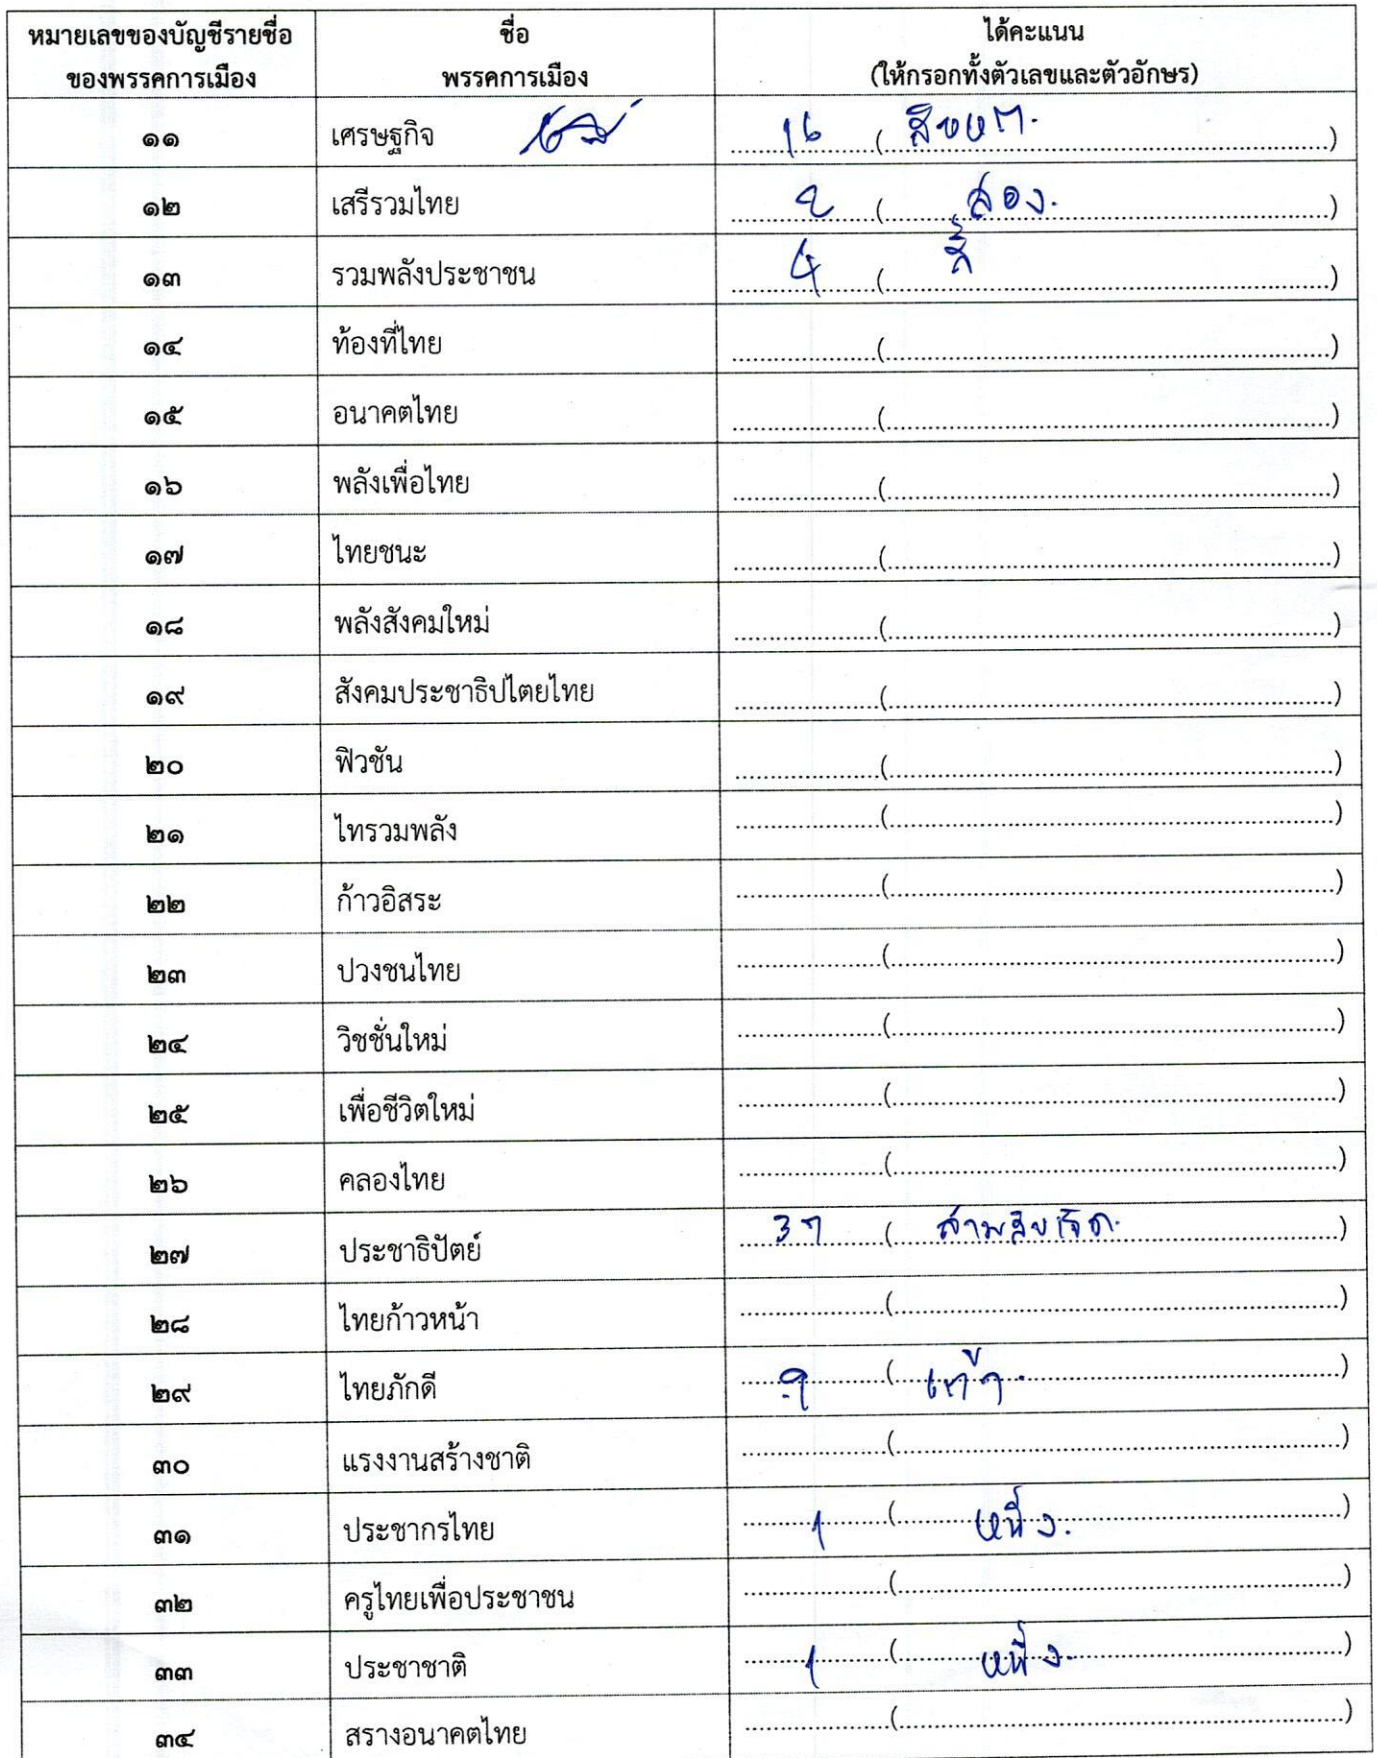 หมายเลขของบัญชีรายชื่อ ชื่อ ได้คะแนน
ของพรรคการเมือง พรรคการเมือง (ให้กรอกทั้งตัวเลขและตัวอักษร)
๑๑ เศรษฐกิจ 16 (สิบหก.)
๑๒ เสรีรวมไทย 2 (สอง.)
๑๓ รวมพลังประชาชน 4 (สี่)
๑๔ ท้องที่ไทย (....)
๑๕ อนาคตไทย (....)
๑๖ พลังเพื่อไทย (....)
๑๗ ไทยชนะ (....)
๑๘ พลังสังคมใหม่ (....)
๑๙ สังคมประชาธิปไตยไทย (....)
๒๐ ฟิวชัน (....)
๒๑ ไทรวมพลัง (....)
๒๒ ก้าวอิสระ (....)
๒๓ ปวงชนไทย (....)
๒๔ วิชชั่นใหม่ (....)
๒๕ เพื่อชีวิตใหม่ (....)
๒๖ คลองไทย (....)
๒๗ ประชาธิปัตย์ 37 (สามสิบเจ็ด.)
๒๘ ไทยก้าวหน้า (....)
๒๙ ไทยภักดี 9 (เก้า.)
๓๐ แรงงานสร้างชาติ (....)
๓๑ ประชากรไทย 1 (หนึ่ง.)
๓๒ ครูไทยเพื่อประชาชน (....)
๓๓ ประชาชาติ 1 (หนึ่ง.)
๓๔ สร้างอนาคตไทย (....)